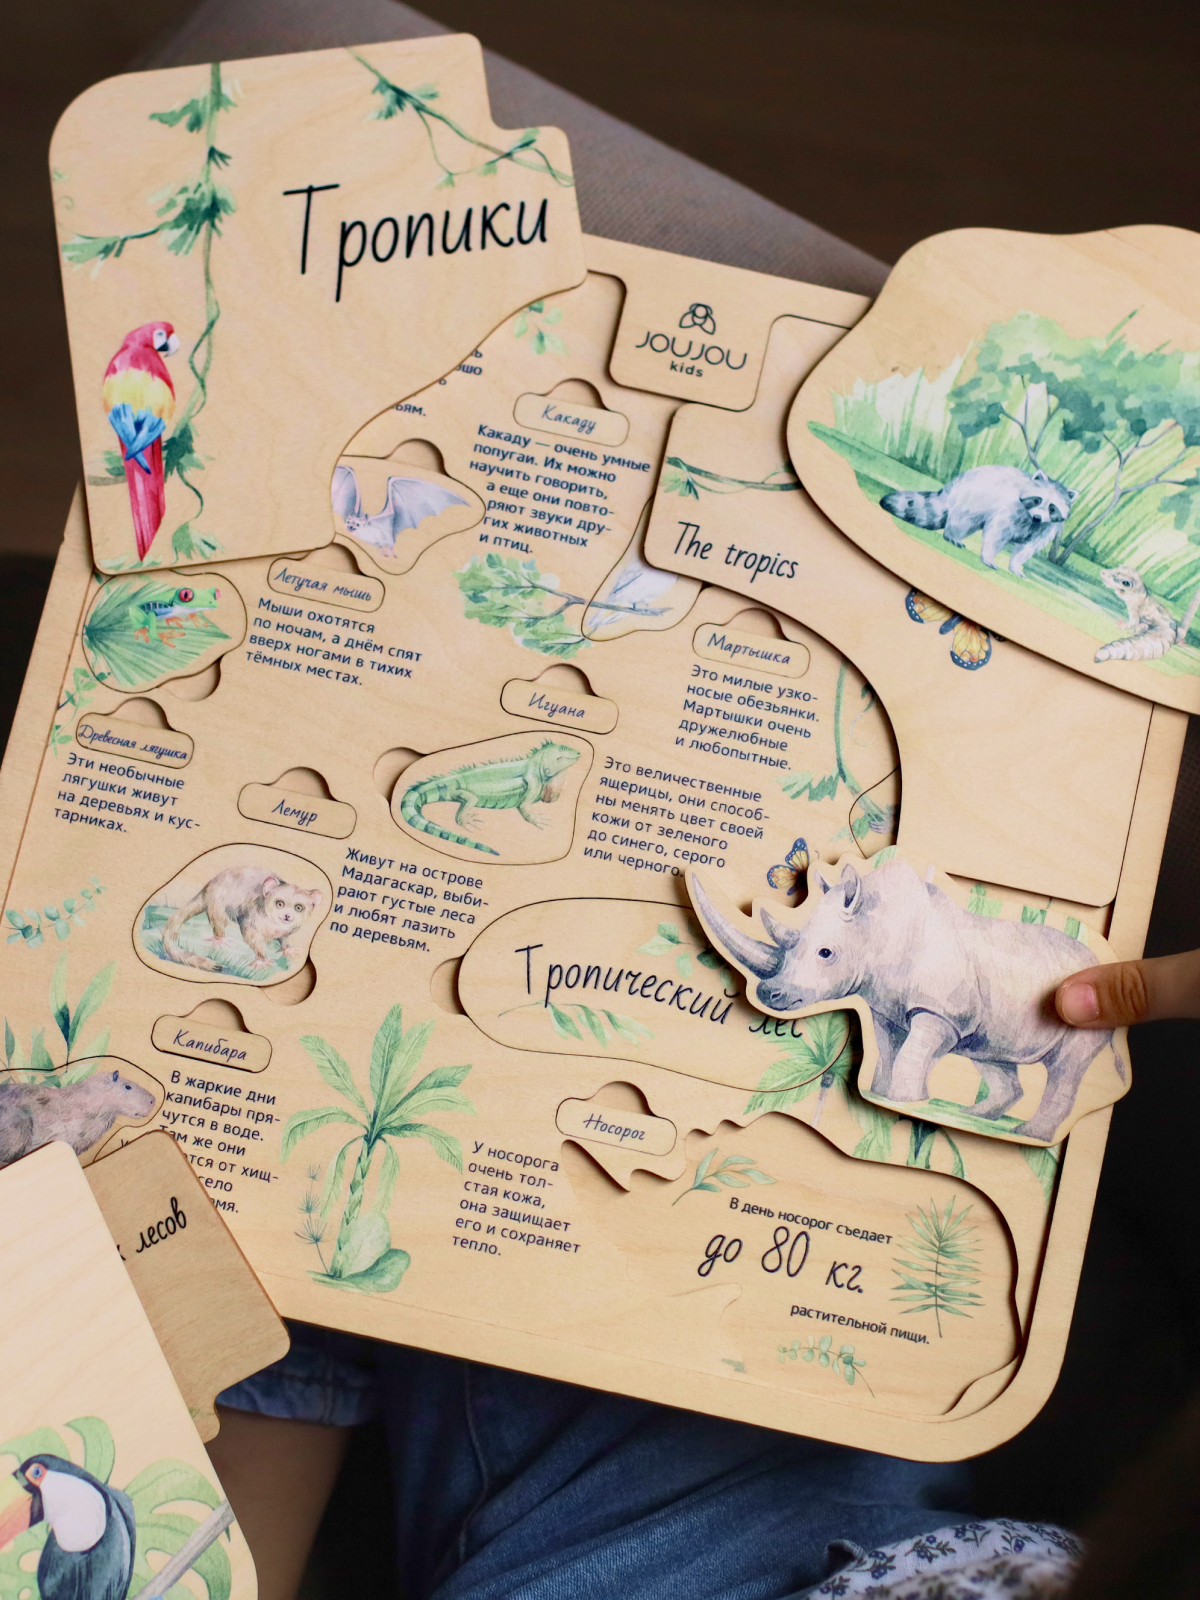 Тропики
JOUJOU
kids
ьям.
Какаду
Какаду — очень умные
попугаи. Их можно
научить говорить,
а еще они повто-
ряют звуки дру-
гих животных
и птиц.
The tropics
Летучая мышь
Мыши охотятся
по ночам, а днём спят
вверх ногами в тихих
тёмных местах.
Мартышка
Это милые узко-
носые обезьянки.
Мартышки очень
дружелюбные
и любопытные.
Игуана
Это величественные
ящерицы, они способ-
ны менять цвет своей
кожи от зеленого
до синего, серого
или черного.
Древесная лягушка
Эти необычные
лягушки живут
на деревьях и кус-
тарниках.
Лемур
Живут на острове
Мадагаскар, выби-
рают густые леса
и любят лазить
по деревьям.
Тропический лес
Капибара
В жаркие дни
капибары пря-
чутся в воде.
Там же они
тся от хищ-
село
мя.
лесов
Носорог
У носорога
очень тол-
стая кожа,
она защищает
его и сохраняет
тепло.
В день носорог съедает
до 80 кг.
растительной пищи.